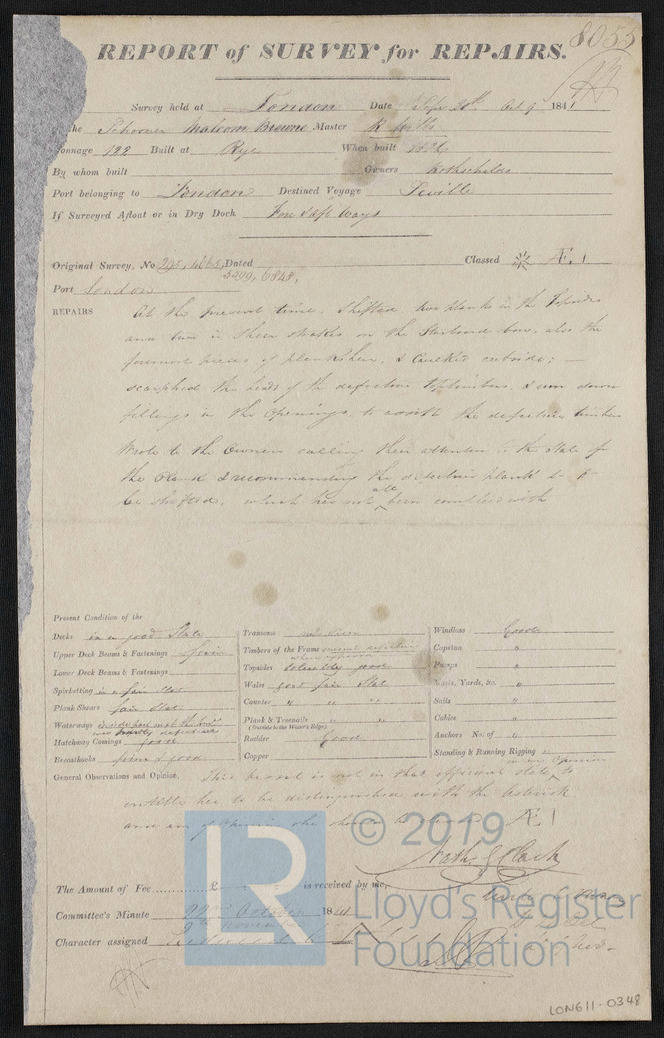 8055
REPORT of SURVEY for REPAIRS.
Survey held at London Date Sept 20th Oct 9 1841
the Schooner Malcom Browne Master R
onnage 122 Built at Rye When built 1826
By whom built Owners Rothschilds
Port belonging to London Destined Voyage Seville
If Surveyed Afloat or in Dry Dock Ways
Original Survey, No Dated Classed Æ. 1
5299, 6848,
Port London
REPAIRS At the present time. Shifted two planks in the Topsides
and two in Sheer strakes on the Starboard bow, also the
foremost pieces of planksheer, & Caulked outside; —
scarphed the heads of the defective toptimbers, & run down
fillings in the Openings, to assist the defective timbers
Wrote to the Owners calling their attention to the State of
the Plank & recommending the defective plank to
be shifted, which has not been complied with
Present Condition of the
Decks in a good State
Upper Deck Beams & Fastenings
Lower Deck Beams & Fastenings
Spirketting in a fair state
Plank Shears fair State
Waterways
Hatchway Comings good
Breasthooks
Transoms not seen
Timbers of the Frame several defective
Topsides tolerably good
Wales good fair State
Counter " " "
Plank & Treenails " "
(Outside to the Water's Edge)
Rudder Good
Copper
Windlass Good
Capstan "
Pumps "
Masts, Yards, &c. "
Sails "
Cables "
Anchors No. of "
Standing & Running Rigging "
General Observations and Opinion, This vessel is not in that efficient state, in my Opinion to
entitle her to be distinguished with the Asterisk
and am of opinion she Æ 1
Clark
The Amount of Fee 2 is received by me,
Committee's Minute 22nd October 1841
Character assigned
LR
© 2019
Lloyd's Register
Foundation
LON611-0348